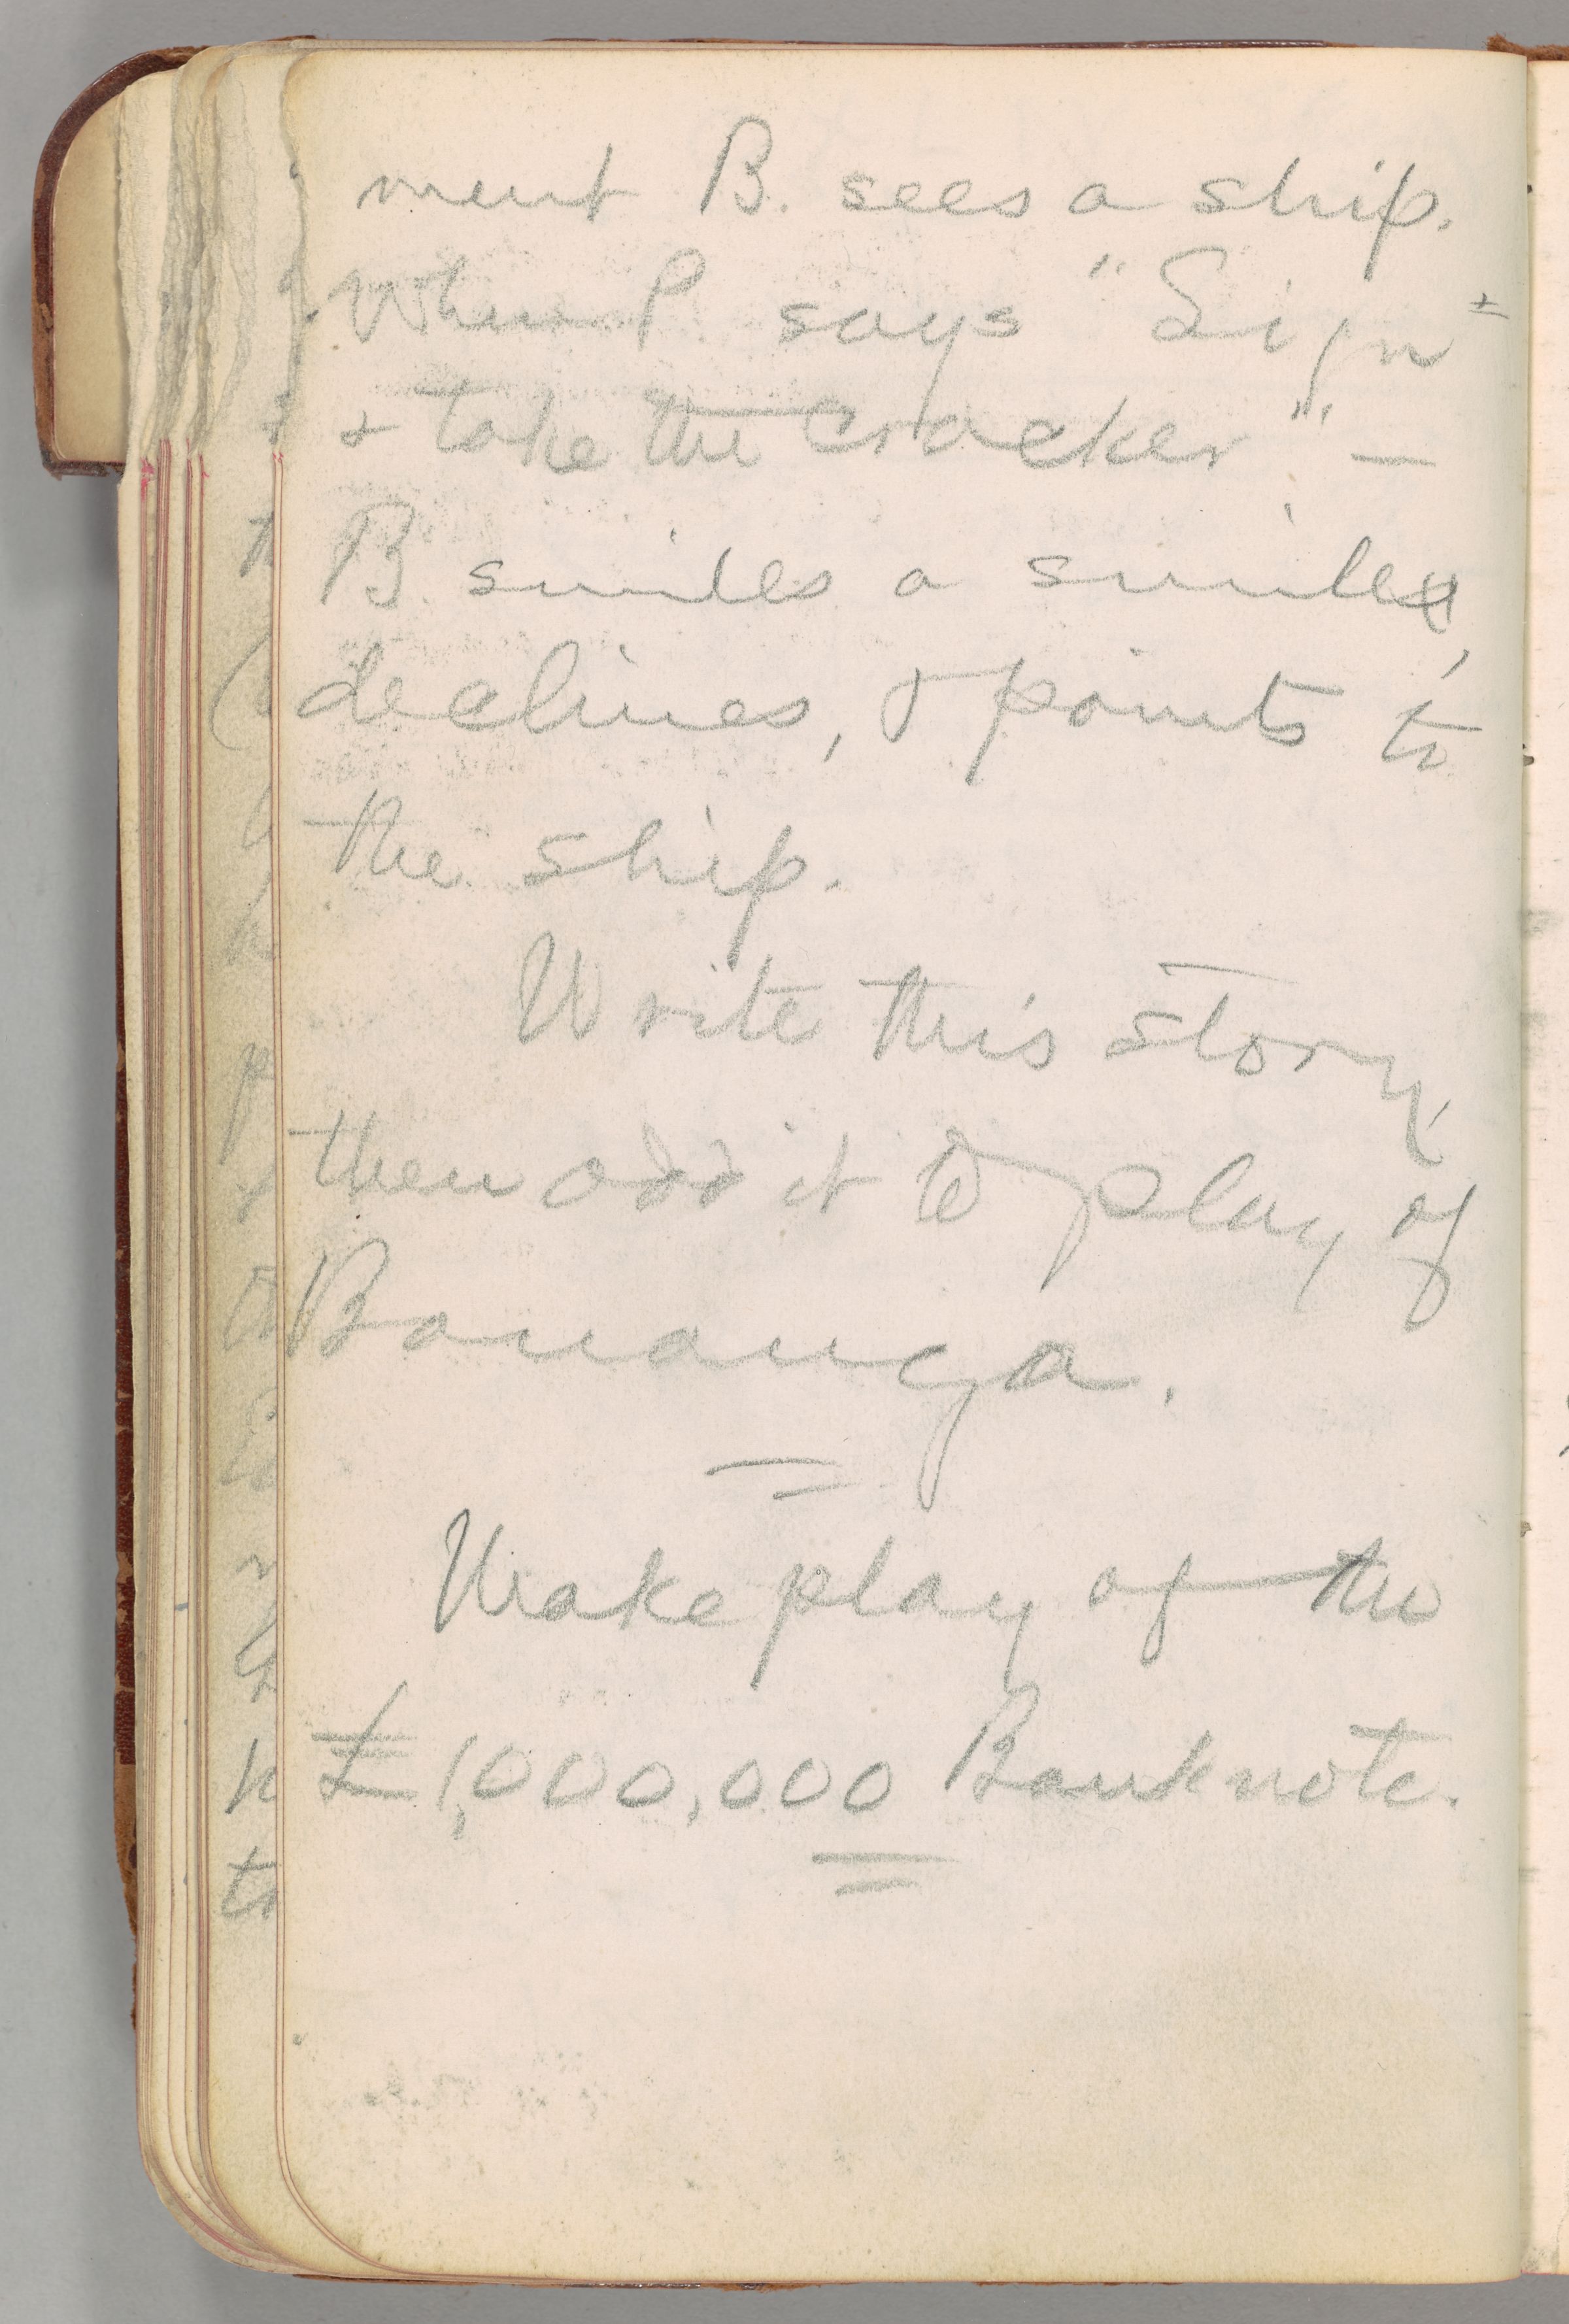 ment B. sees a ship.
When P. says "Sign
& take the cracker" —
B. smiles a smile,
declines, & points to
the ship.
Write this story,
then add it to play of
Bonanza.
Make play of the
£1,000,000 Banknote.